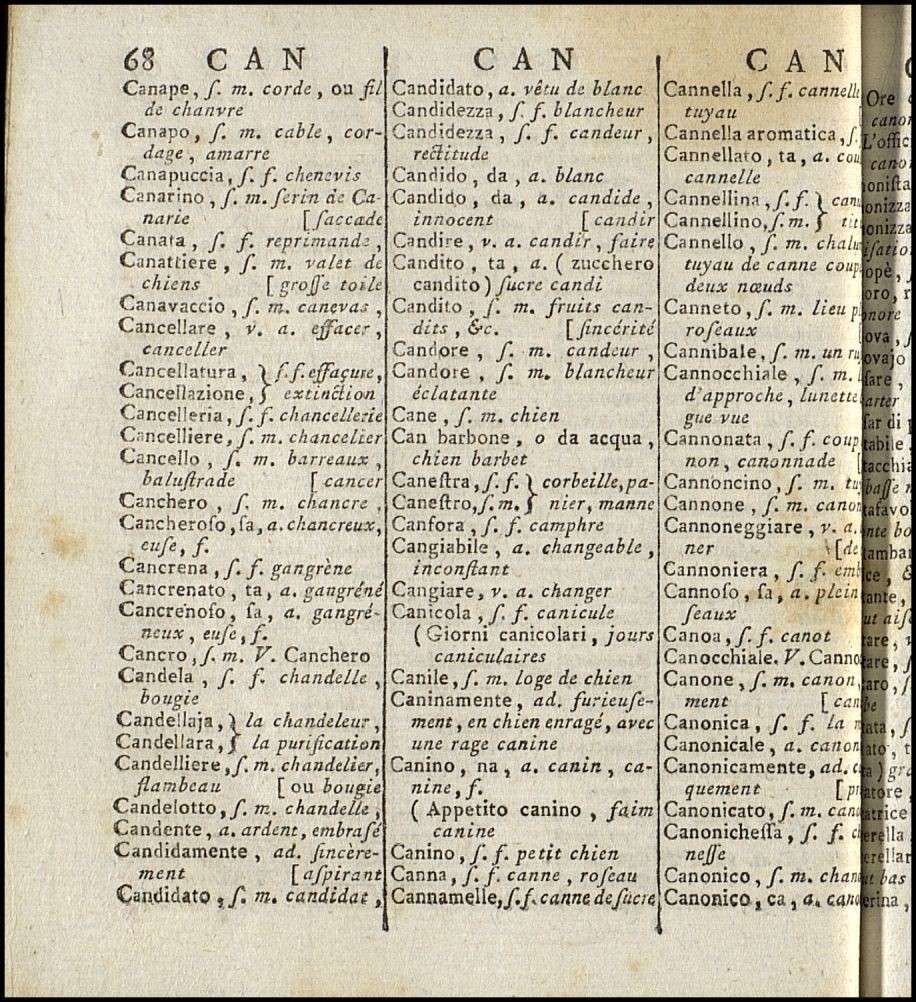 68 CAN
Canape, ſ. m. corde, ou fil
de chanvre
Canapo, ſ. m. cable, cor-
dage, amarre
Canapuccia, ſ. f. chenevis
Canarino, ſ. m. ſerin de Ca-
narie [ſaccade
Canata, ſ. f. reprimande,
Canattiere, ſ. m. valet de
chiens [groſſe toile
Canavaccio, ſ. m. canevas,
Cancellare, v. a. effacer,
canceller
Cancellatura, } ſ. f. effaçure,
Cancellazione, } extinction
Cancelleria, ſ. f. chancellerie
Cancelliere, ſ. m. chancelier
Cancello, ſ. m. barreaux,
baluſtrade [cancer
Canchero, ſ. m. chancre,
Cancheroſo, ſa, a. chancreux,
euſe, f.
Cancrena, ſ. f. gangrène
Cancrenato, ta, a. gangréné
Cancrenoſo, ſa, a. gangré-
neux, euſe, f.
Cancro, ſ. m. V. Canchero
Candela, ſ. f. chandelle,
bougie
Candellaja, } la chandeleur,
Candellara, } la purification
Candelliere, ſ. m. chandelier,
flambeau [ou bougie
Candelotto, ſ. m. chandelle,
Candente, a. ardent, embraſé
Candidamente, ad. ſincère-
ment [aſpirant
Candidato, ſ. m. candidat,
CAN
Candidato, a. vêtu de blanc
Candidezza, ſ. f. blancheur
Candidezza, ſ. f. candeur,
rectitude
Candido, da, a. blanc
Candido, da, a. candide,
innocent [candir
Candire, v. a. candir, faire
Candito, ta, a. (zucchero
candito) ſucre candi
Candito, ſ. m. fruits can-
dits, &c. [ſincérité
Candore, ſ. m. candeur,
Candore, ſ. m. blancheur
éclatante
Cane, ſ. m. chien
Can barbone, o da acqua,
chien barbet
Caneſtra, ſ. f. } corbeille, pa-
Caneſtro, ſ. m. } nier, manne
Canfora, ſ. f. camphre
Cangiabile, a. changeable,
inconſtant
Cangiare, v. a. changer
Canicola, ſ. f. canicule
(Giorni canicolari, jours
caniculaires
Canile, ſ. m. loge de chien
Caninamente, ad. furieuſe-
ment, en chien enragé, avec
une rage canine
Canino, na, a. canin, ca-
nine, f.
(Appetito canino, faim
canine
Canino, ſ. f. petit chien
Canna, ſ. f. canne, roſeau
Cannamelle, ſ. f. canne de ſucre
CAN
Cannella, ſ. f. cannelle
tuyau
Cannella aromatica, ſ.
Cannellato, ta, a. cou
cannelle
Cannellina, ſ. f. }
Cannellino, ſ. m. }
Cannello, ſ. m. chalu
tuyau de canne coup
deux nœuds
Canneto, ſ. m. lieu p
roſeaux
Cannibale, ſ. m. un
Cannocchiale, ſ. m.
d'approche, lunette
gue vue
Cannonata, ſ. f. coup
non, canonnade
Cannoncino, ſ. m.
Cannone, ſ. m. canon
Cannoneggiare, v. a.
ner [de
Cannoniera, ſ. f. emb
Cannoſo, ſa, a. plein
ſeaux
Canoa, ſ. f. canot
Canocchiale. V. Canno
Canone, ſ. m. canon,
ment [can
Canonica, ſ. f. la
Canonicale, a. canon
Canonicamente, ad. c
quement [p
Canonicato, ſ. m. cano
Canonicheſſa, ſ. f. c
neſſe
Canonico, ſ. m. chan
Canonico, ca, a. cano